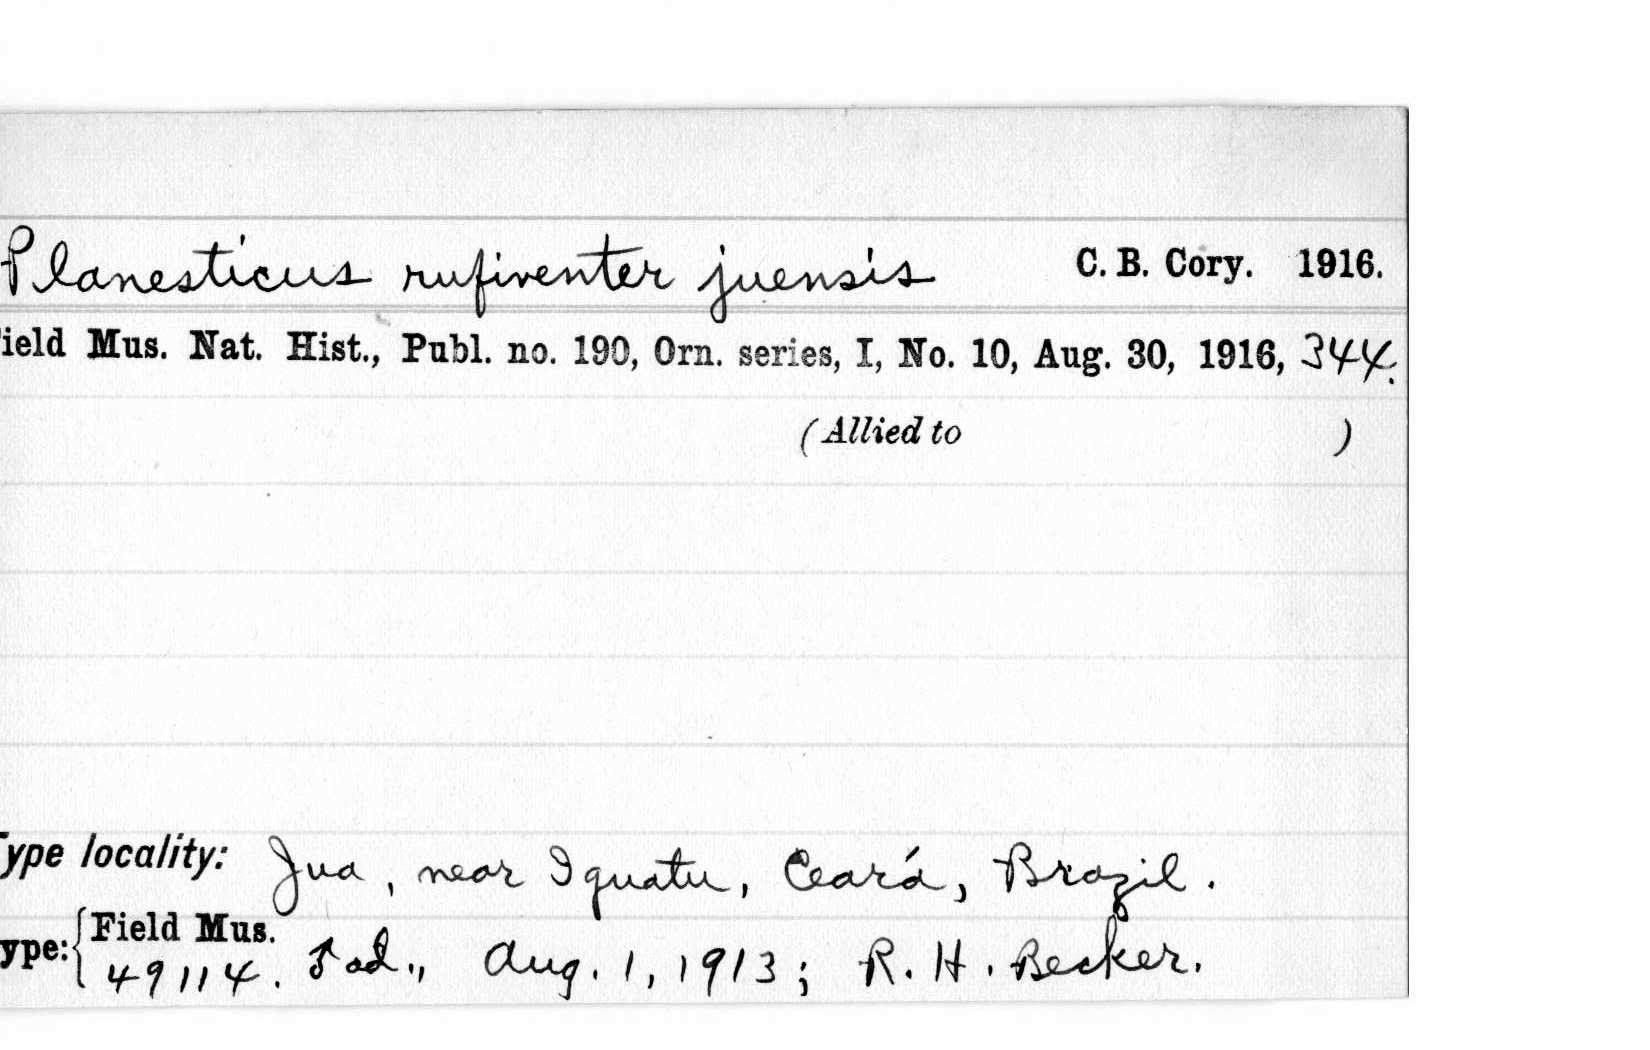 Planesticus rufiventer juensis C. B. Cory. 1916.
ield Mus. Nat. Hist., Publ. no. 190, Orn. series, I, No. 10, Aug. 30, 1916, 344.
(Allied to )
Type locality: Jua, near Iguatu, Ceará, Brazil.
ype: { Field Mus.
49114. ♂ ad., Aug. 1, 1913; R. H. Becker.